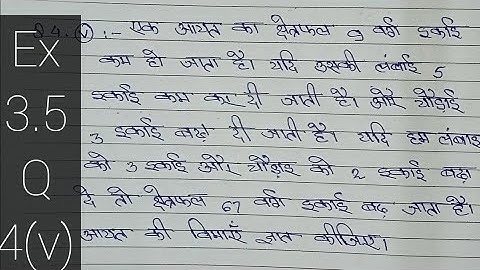 Ex
3.5
Q
4(v)
Q4. (v) :- एक आयत का क्षेत्रफल 9 वर्ग इकाई
कम हो जाता है। यदि उसकी लंबाई 5
इकाई कम कर दी जाती है। और चौड़ाई
3 इकाई बढ़ा दी जाती है। यदि हम लंबाई
को 3 इकाई और चौड़ाई को 2 इकाई बढ़ा
दे तो क्षेत्रफल 67 वर्ग इकाई बढ़ जाता है।
आयत की विमाएँ ज्ञात कीजिए।